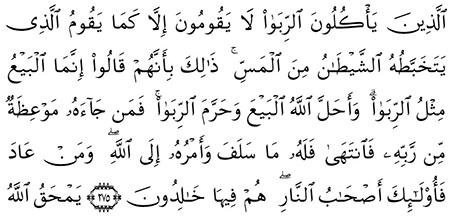 ٱلَّذِينَ يَأْكُلُونَ ٱلرِّبَوٰا۟ لَا يَقُومُونَ إِلَّا كَمَا يَقُومُ ٱلَّذِى
يَتَخَبَّطُهُ ٱلشَّيْطَـٰنُ مِنَ ٱلْمَسِّ ۚ ذَٰلِكَ بِأَنَّهُمْ قَالُوٓا۟ إِنَّمَا ٱلْبَيْعُ
مِثْلُ ٱلرِّبَوٰا۟ ۗ وَأَحَلَّ ٱللَّهُ ٱلْبَيْعَ وَحَرَّمَ ٱلرِّبَوٰا۟ ۚ فَمَن جَآءَهُۥ مَوْعِظَةٌ
مِّن رَّبِّهِۦ فَٱنتَهَىٰ فَلَهُۥ مَا سَلَفَ وَأَمْرُهُۥٓ إِلَى ٱللَّهِ ۖ وَمَنْ عَادَ
فَأُو۟لَـٰٓئِكَ أَصْحَـٰبُ ٱلنَّارِ ۖ هُمْ فِيهَا خَـٰلِدُونَ ﴿٢٧٥﴾ يَمْحَقُ ٱللَّهُ